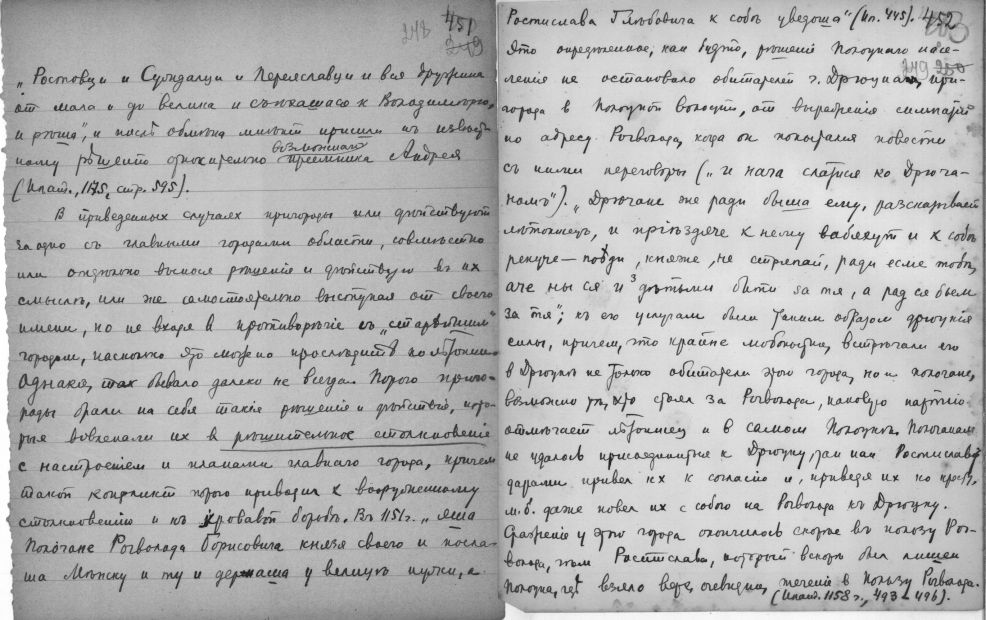 451
248
249
„Ростовци и Суждалци и Переяславци и вся дружина
от мала и до велика и съѣхашася к Володимѣрю,
и рѣша", и послѣ обмѣна мнѣній пришли къ извѣст-
ному рѣшенію относительно возможнаго преемника Андрея
(Ипат., 1175, стр. 595).
В приведенных случаях пригороды или дѣйствуют
заодно съ главными городами области, совмѣстно
или отдѣльно вынося рѣшение и дѣйствуя въ их
смыслѣ, или же самостоятельно выступая от своего
имени, но не входя в противорѣчіе съ „старѣйшим"
городом, насколько это можно прослѣдить по лѣтописи.
Однако, так бывало далеко не всегда. Порого приго-
роды брали на себя такія рѣшенія и дѣйствія, кото-
рыя вовлекали их в рѣшительное столкновеніе
с настроеніем и планами главнаго города, причем
такой конфликт порою приводил к вооруженному
столкновенію и къ кровавой борьбѣ. Въ 1151 г. „яша
Полочане Рогволода Борисовича князя своего и посла-
ша Мѣньску и ту и держаша у велицѣ нужи, а
452
203
249 250
Ростислава Глѣбовича к собѣ уведоша" (Ип. 445).
Это опредѣленное, как будто, рѣшеніе Полоцкаго насе-
ленія не остановило обитателей г. Дрюцка, при-
города в Полоцкой волости, от выраженія симпатій
по адресу Рогволода, когда он попытался повести
съ ними переговоры („и нача слатися ко Дрьюча-
ном"). „Дрючане же ради быша ему, разсказывает
лѣтописец, и приѣздяче к нему вабяхут и к собѣ
рекуче — поѣди, княже, не стряпай, ради есме тобѣ,
аче ны ся и з дѣтьми бити за тя, а рад ся бьем
за тя"; къ его услугам были таким образом дрюцкія
силы, причем, что крайне любопытно, встрѣчали его
в Дрюцкѣ не только обитатели этого города, но и полочане,
возможно тѣ, кто стоял за Рогволода, каковую партію
отмѣчает лѣтописец и в самом Полоцкѣ. Полочанам
не удалось присоединиться к Дрюцку, так как Ростислав
дарами привел их к согласію и, приведя их ко кресту,
м. б. даже повел их с собою на Рогволода къ Дрюцку.
Сраженіе у этого города окончилось скорѣе въ пользу Рог-
волода, чѣм Ростислава, который вскорѣ был лишен
Полоцка, гдѣ взяло верх, очевидно, теченіе в пользу Рогволода.
(Ипат. 1158 г., 493 — 496).